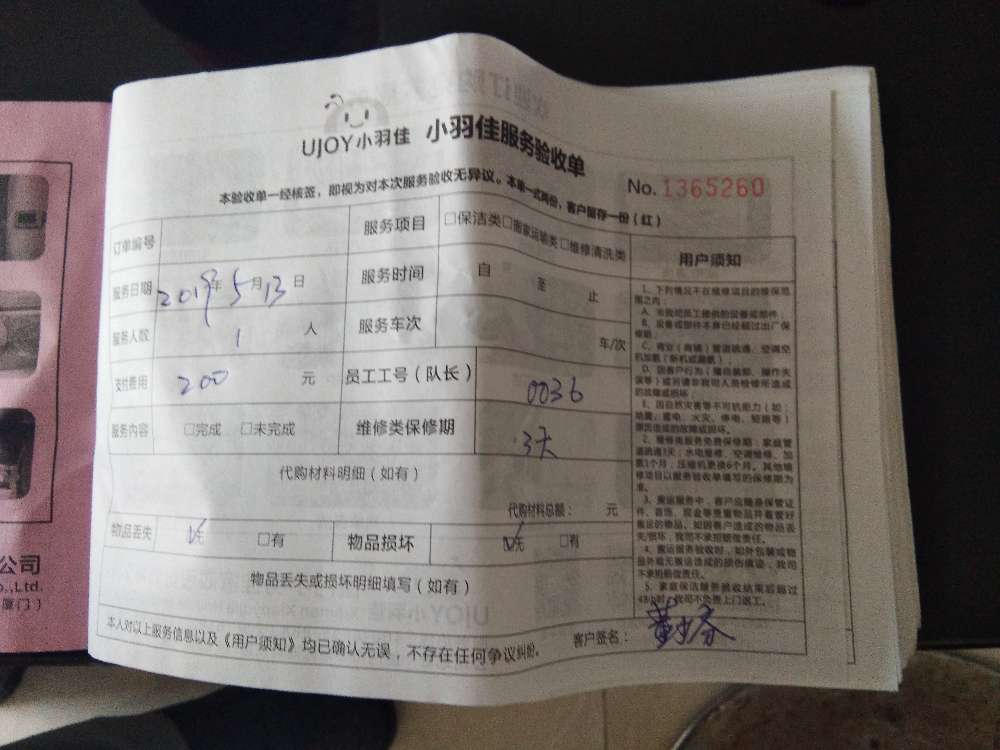 UJOY小羽佳 小羽佳服务验收单
本验收单一经核签，即视为对本次服务验收无异议。本单一式两份，客户留存一份（红）
No.1365260
订单编号 服务项目 □保洁类□搬家运输类□维修清洗类
服务日期 2019年5月13日 服务时间 自 至 止
服务人数 1 人 服务车次 车/次
支付费用 200 元 员工工号（队长） 0036
服务内容 □完成 □未完成 维修类保修期 3天
代购材料明细（如有）
代购材料总额： 元
物品丢失 ☑无 □有 物品损坏 ☑无 □有
物品丢失或损坏明细填写（如有）
本人对以上服务信息以及《用户须知》均已确认无误，不存在任何争议纠纷。
客户签名：
用户须知
1、下列情况不在维修项目的维保范
围之内：
A、非我司员工提供的设备或部件；
B、设备或部件本身已经超过出厂保
修期；
C、商业（商铺）管道疏通、空调空
机加氨（新机或漏氨）
E、因自然灾害等不可抗能力（如：
地震、雷电、火灾、停电、短路等）
原因造成的故障或损坏。
2、维修类服务免费保修期：家庭管
道疏通3天；水电维修、空调维修、加
氨1个月；压缩机更换6个月。其他维
修项目以服务验收单填写的保修期为
准。
3、搬运服务中，客户应随身保管证
件、首饰、现金等贵重物品并看管好
搬运的物品，如因客户造成的物品丢
失/损坏，我司不承担赔偿责任。
4、搬运服务验收时，如外包装或物
品外观无搬运造成的损伤痕迹，我司
不承担赔偿责任。
5、家庭保洁服务验收结束后超过
48小时，我司不负责上门返工。
公司
o.,Ltd.
厦门）